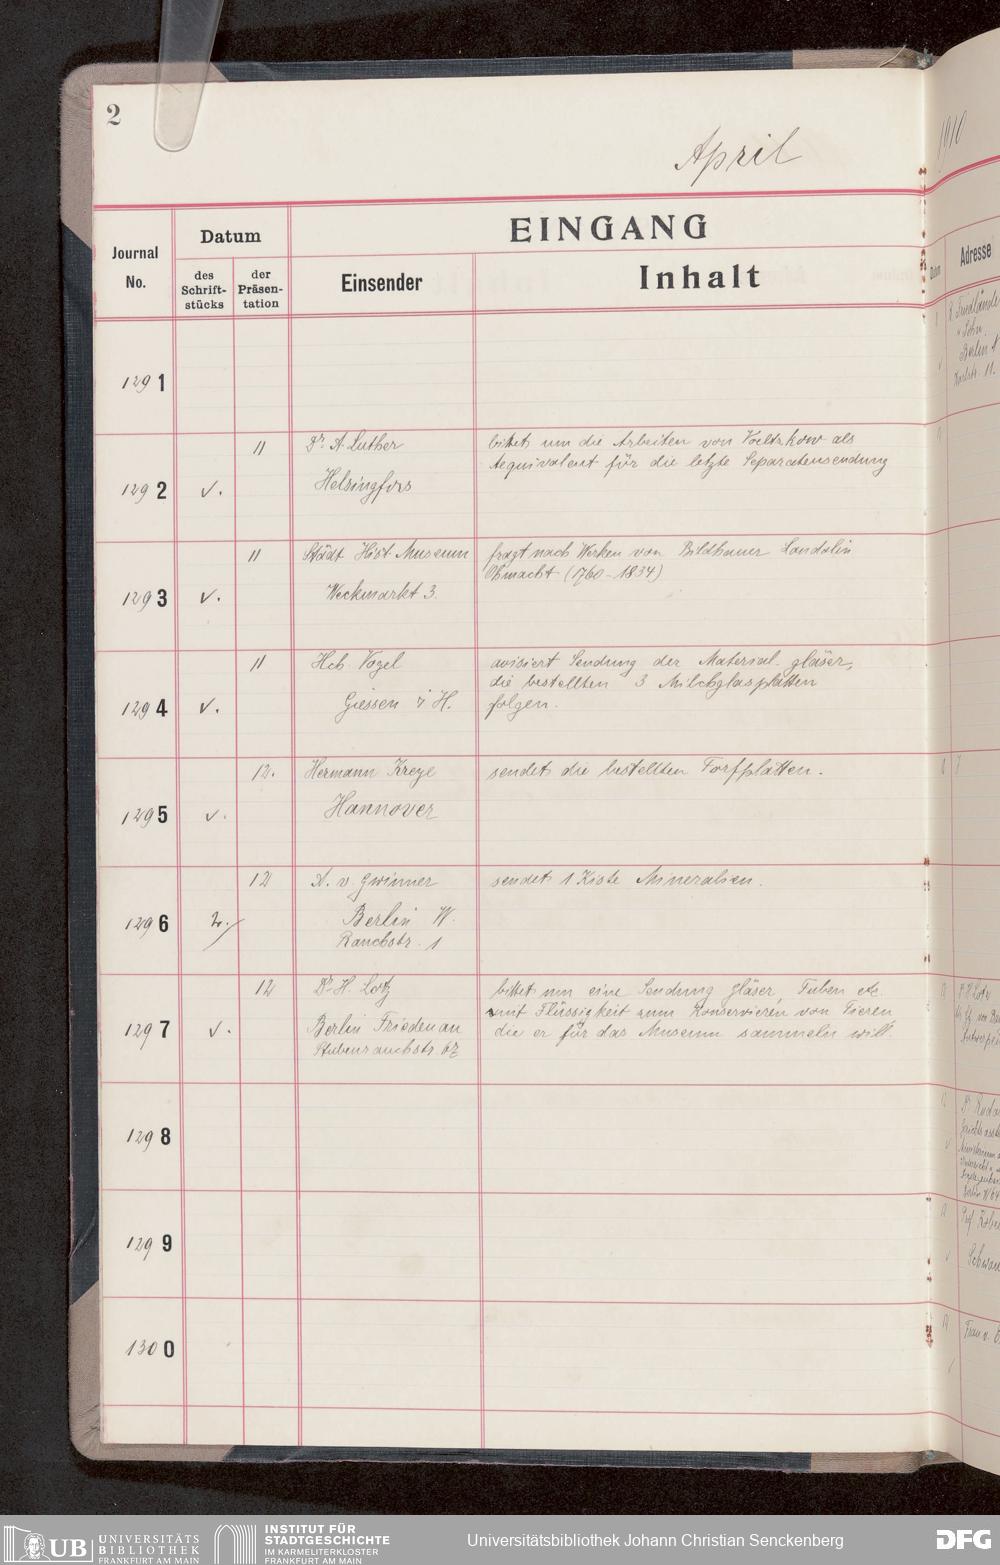 2
April
1910
EINGANG
Journal No.
Datum
des Schrift-stücks
der Präsen-tation
Einsender
Inhalt
Datum
Adresse
1291
1292
v.
11
Dr. A. Luther
Helsingfors
bittet um die Arbeiten von Voeltzkow als
Aequivalent für die letzte Separatensendung
1293
v.
11
Städt Hist Museum
Weckmarkt 3.
fragt nach Werken von Bildhauer Landolin
Ohmacht (1760-1834)
1294
v.
11
Hch. Vogel
Giessen i/H.
avisiert Sendung der Material-gläser,
die bestellten 3 Milchglasplatten
folgen.
1295
v.
12.
Hermann Kreye
Hannover
sendet die bestellten Torfplatten.
1296
12
A. v. Gwinner
Berlin W.
Rauchstr. 1
sendet 1 Kiste Mineralien.
1297
v.
12
Dr. H. Lotz
Berlin Friedenau
Stubenrauchstr. 67
bittet um eine Sendung Gläser, Tuben etc
mit Flüssigkeit zum Konservieren von Tieren
die er für das Museum sammeln will.
1298
1299
1300
R. Friedlände
u. Sohn
Berlin
Karlstr. 11.
UB
UNIVERSITÄTS
BIBLIOTHEK
FRANKFURT AM MAIN
INSTITUT FÜR
STADTGESCHICHTE
IM KARMELITERKLOSTER
FRANKFURT AM MAIN
Universitätsbibliothek Johann Christian Senckenberg
DFG